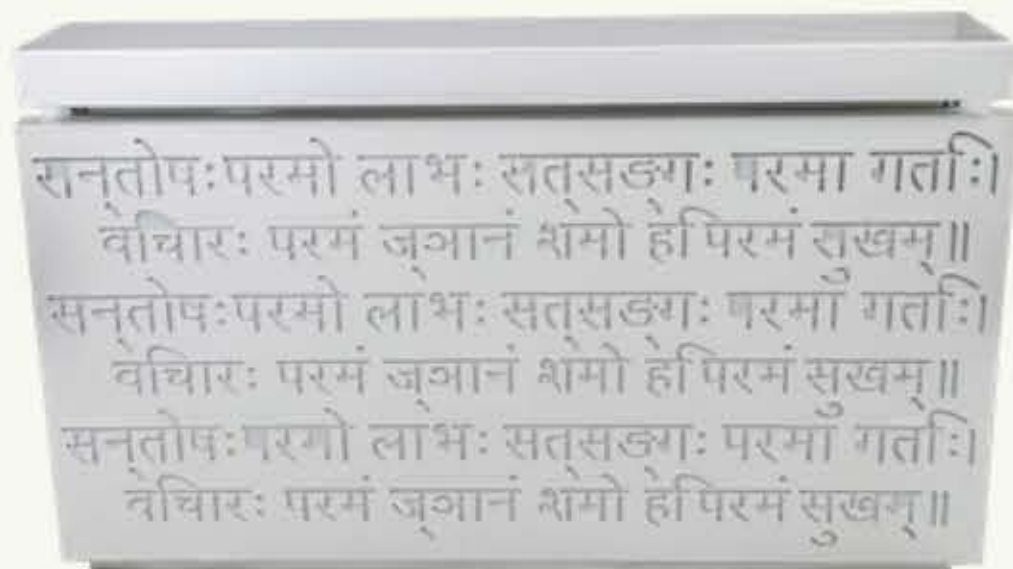 सन्‌तोषः परमो लाभः सत्‌सङ्‌गः परमा गतिः।
वचिारः परमं ज्‌ञानं शमो हपिरमं सुखम्॥
सन्‌तोषः परमो लाभः सत्‌सङ्‌गः परमा गतिः।
वचिारः परमं ज्‌ञानं शमो हपिरमं सुखम्॥
सन्‌तोषः परमो लाभः सत्‌सङ्‌गः परमा गतिः।
वचिारः परमं ज्‌ञानं शमो हपिरमं सुखम्॥